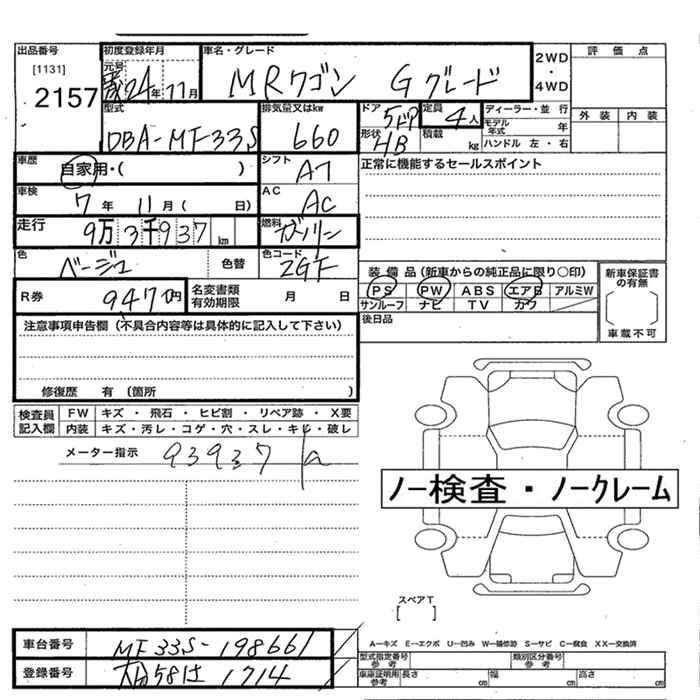 出品番号 初度登録年月 車名・グレード 2WD・4WD 評価点
[1131] 元号
2157 24年 11月 MRワゴン Gグレード
型式 排気量又はkw ドア 5ドア 定員 4人 ディーラー・並行 外装 内装
DBA-MF33S 660 形状 HB 積載 kg モデル年式 年
ハンドル 左・右
車歴 自家用・( ) シフト AT 正常に機能するセールスポイント
車検 7年 11月 ( 日) AC AC
走行 9万3千937km 燃料 ガソリン
色 ベージュ 色替 色コード ZGF 装備品(新車からの純正品に限り○印) 新車保証書の有無
R券 9470円 名変書類有効期限 月 日 PS PW ABS エアB アルミW
サンルーフ ナビ TV カワ 車載不可
注意事項申告欄(不具合内容等は具体的に記入して下さい) 後日品
修復歴 有 (箇所 )
検査員記入欄 FW キズ・飛石・ヒビ割・リペア跡・X要
内装 キズ・汚レ・コゲ・穴・スレ・キレ・破レ
メーター指示 93937
ノー検査・ノークレーム
スペアT
[ ]
車台番号 MF33S-198661 A―キズ E―エクボ U―凹み W―補修跡 S―サビ C―腐食 XX―交換済
型式指定番号 参考 類別区分番号 参考
登録番号 大分581 1714 車庫証明用 参考 長さ cm 幅 cm 高さ cm